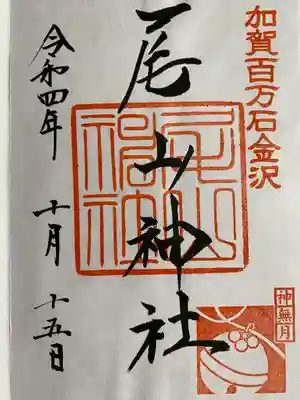 加賀百万石金沢
尾山神社
尾山神社
神無月
令和四年 十月 十五日